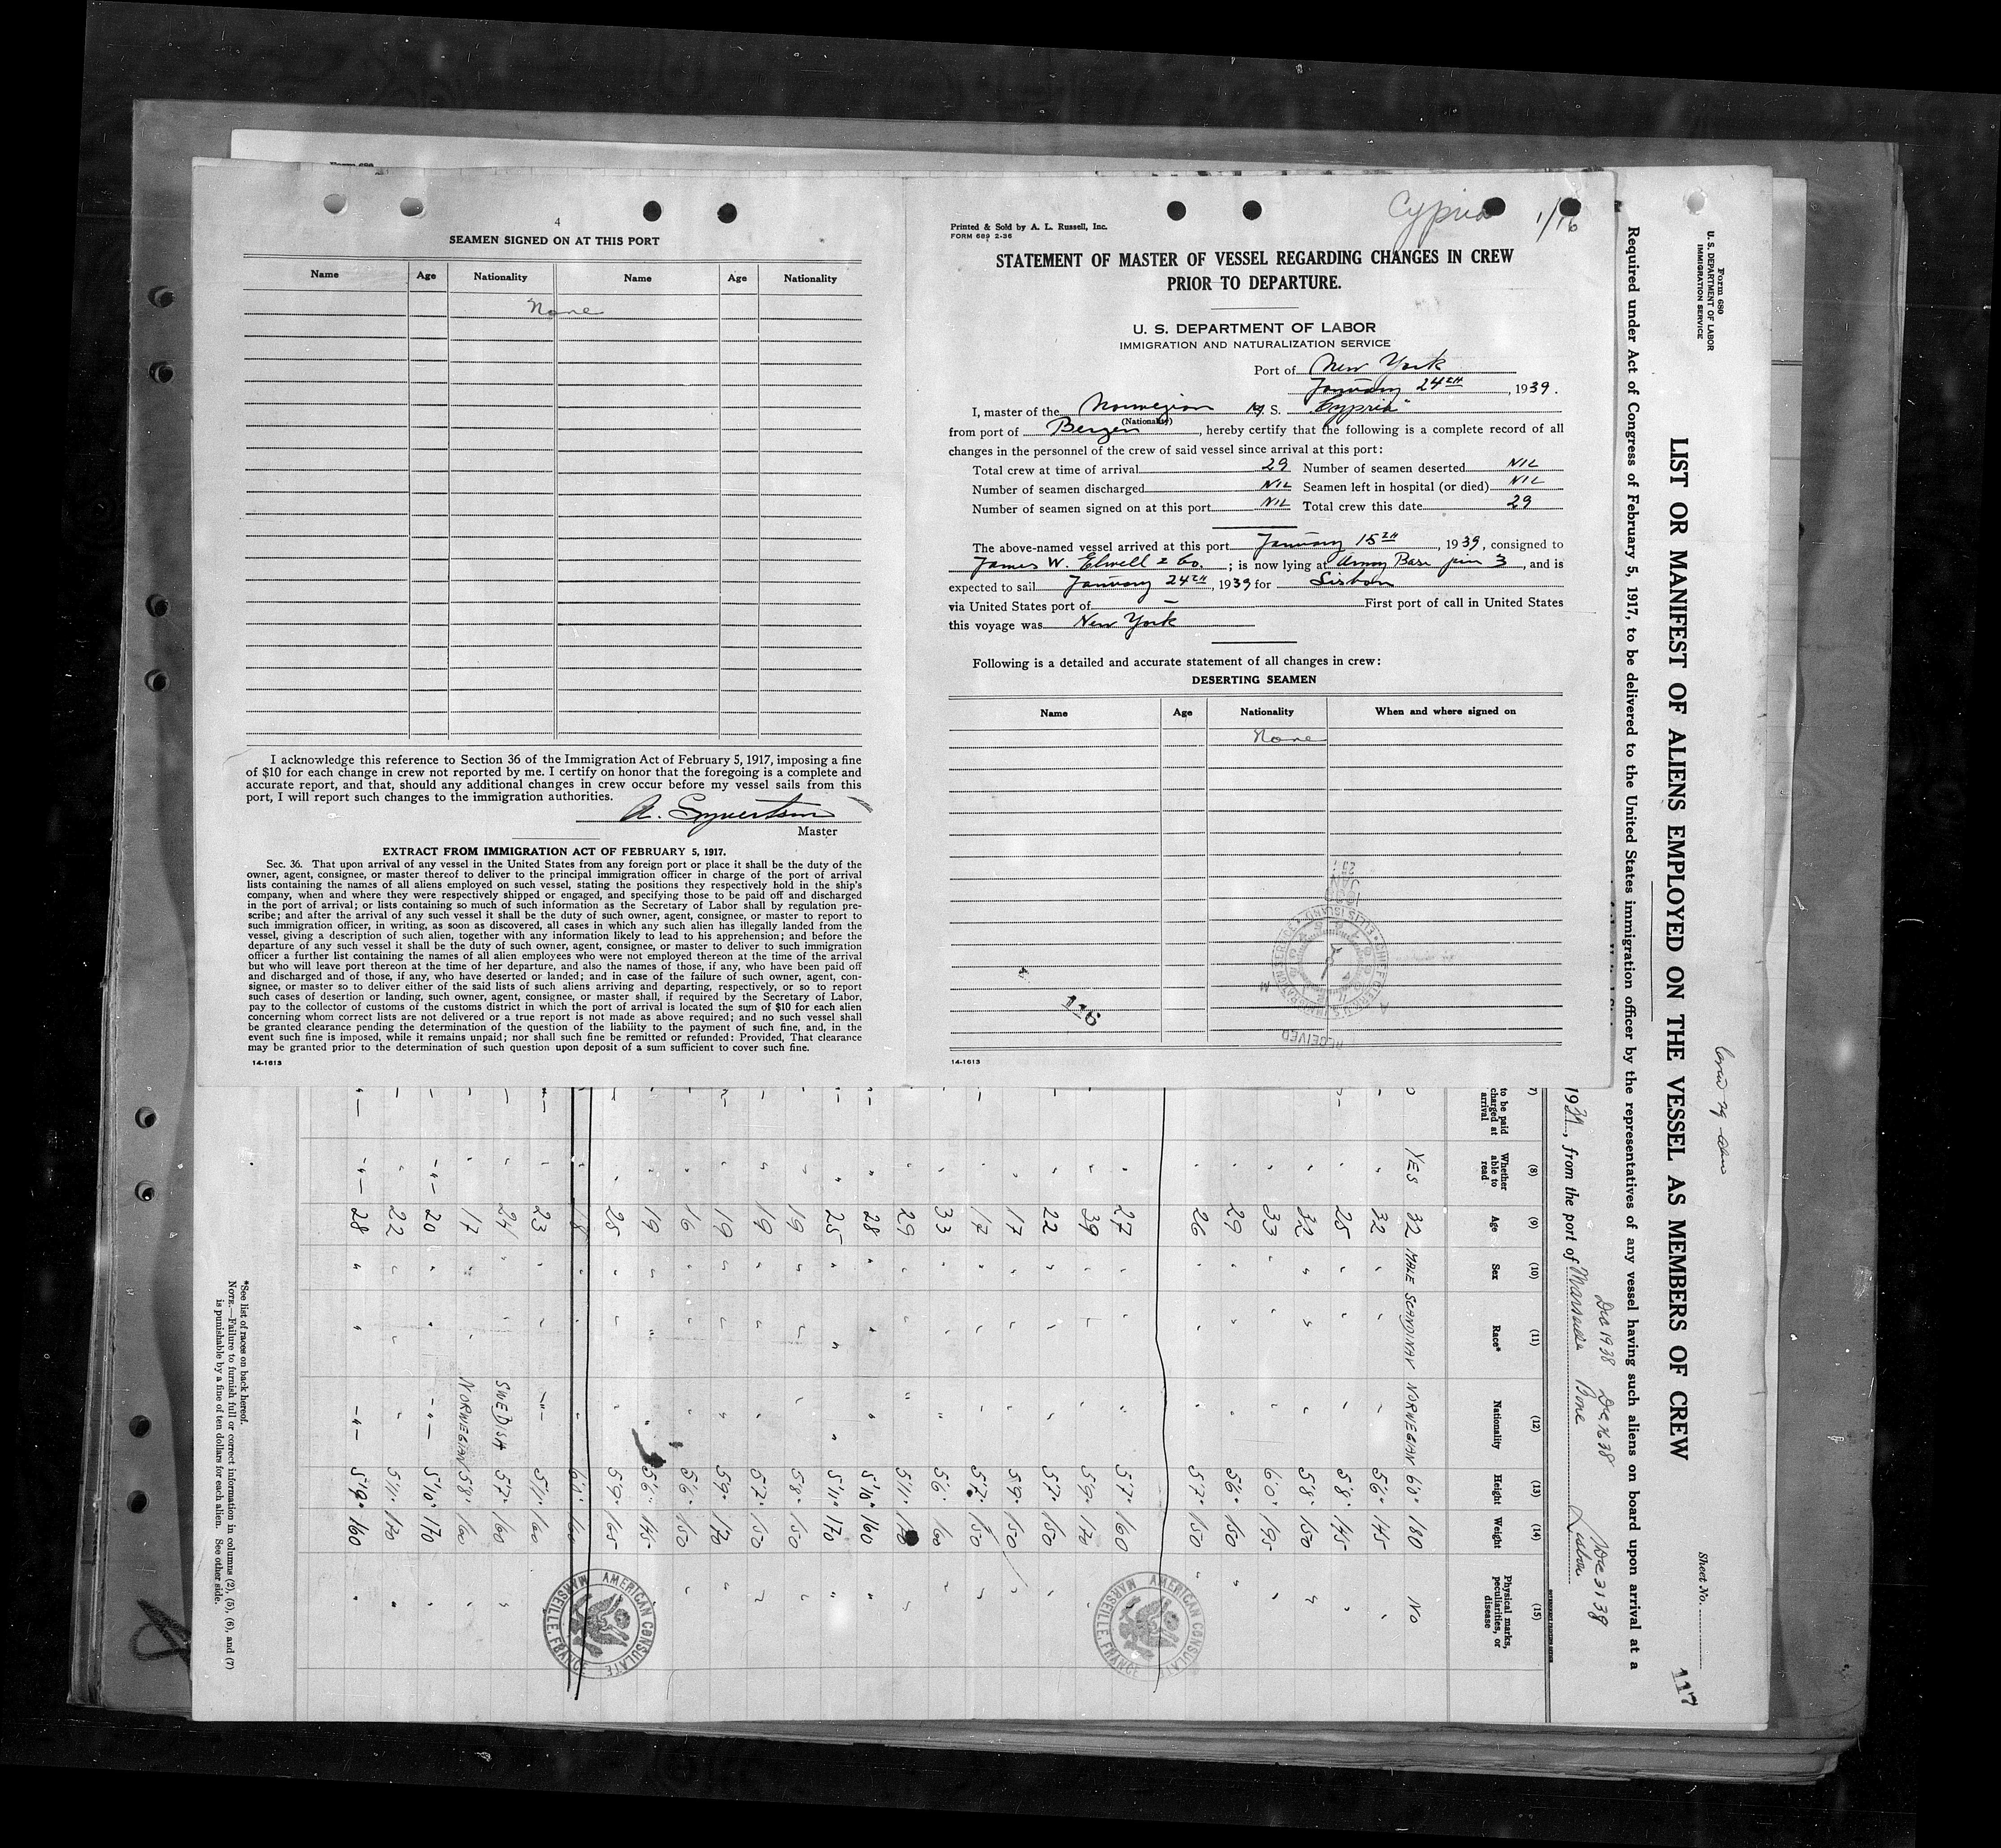 Form 689
4
SEAMEN SIGNED ON AT THIS PORT
Name Age Nationality Name Age Nationality
None
I acknowledge this reference to Section 36 of the Immigration Act of February 5, 1917, imposing a fine
of $10 for each change in crew not reported by me. I certify on honor that the foregoing is a complete and
accurate report, and that, should any additional changes in crew occur before my vessel sails from this
port, I will report such changes to the immigration authorities.
Master
EXTRACT FROM IMMIGRATION ACT OF FEBRUARY 5, 1917.
Sec. 36. That upon arrival of any vessel in the United States from any foreign port or place it shall be the duty of the
owner, agent, consignee, or master thereof to deliver to the principal immigration officer in charge of the port of arrival
lists containing the names of all aliens employed on such vessel, stating the positions they respectively hold in the ship's
company, when and where they were respectively shipped or engaged, and specifying those to be paid off and discharged
in the port of arrival; or lists containing so much of such information as the Secretary of Labor shall by regulation pre-
scribe; and after the arrival of any such vessel it shall be the duty of such owner, agent, consignee, or master to report to
such immigration officer, in writing, as soon as discovered, all cases in which any such alien has illegally landed from the
vessel, giving a description of such alien, together with any information likely to lead to his apprehension; and before the
departure of any such vessel it shall be the duty of such owner, agent, consignee, or master to deliver to such immigration
officer a further list containing the names of all alien employees who were not employed thereon at the time of the arrival
but who will leave port thereon at the time of her departure, and also the names of those, if any, who have been paid off
and discharged and of those, if any, who have deserted or landed; and in case of the failure of such owner, agent, con-
signee, or master so to deliver either of the said lists of such aliens arriving and departing, respectively, or so to report
such cases of desertion or landing, such owner, agent, consignee, or master shall, if required by the Secretary of Labor,
pay to the collector of customs of the customs district in which the port of arrival is located the sum of $10 for each alien
concerning whom correct lists are not delivered or a true report is not made as above required; and no such vessel shall
be granted clearance pending the determination of the question of the liability to the payment of such fine, and, in the
event such fine is imposed, while it remains unpaid; nor shall such fine be remitted or refunded: Provided, That clearance
may be granted prior to the determination of such question upon deposit of a sum sufficient to cover such fine.
14-1613
Cypria 1/16
Printed & Sold by A. L. Russell, Inc.
FORM 689 2-36
STATEMENT OF MASTER OF VESSEL REGARDING CHANGES IN CREW
PRIOR TO DEPARTURE.
U. S. DEPARTMENT OF LABOR
IMMIGRATION AND NATURALIZATION SERVICE
Port of New York
January 24TH, 1939.
I, master of the Norwegian M.S. "Cypria"
(Nationality)
from port of Bergen, hereby certify that the following is a complete record of all
changes in the personnel of the crew of said vessel since arrival at this port:
Total crew at time of arrival 29 Number of seamen deserted NIL
Number of seamen discharged NIL Seamen left in hospital (or died) NIL
Number of seamen signed on at this port NIL Total crew this date 29
The above-named vessel arrived at this port January 15TH, 1939, consigned to
James W. Elwell & Co. ; is now lying at Army Base pier 3, and is
expected to sail January 24TH, 1939 for Lisbon
via United States port of — First port of call in United States
this voyage was New York
Following is a detailed and accurate statement of all changes in crew:
DESERTING SEAMEN
Name Age Nationality When and where signed on
None
116
RECEIVED
14-1613
Form 689
U. S. DEPARTMENT OF LABOR
IMMIGRATION SERVICE
Sheet No.
117
LIST OR MANIFEST OF ALIENS EMPLOYED ON THE VESSEL AS MEMBERS OF CREW
Required under Act of Congress of February 5, 1917, to be delivered to the United States immigration officer by the representatives of any vessel having such aliens on board upon arrival at a
Dec 19 38 Dec 16 38 Dec 31 38
19 , from the port of Marseille Bone Lisbon
(8) (9) (10) (11) (12) (13) (14) (15)
to be paid charged at arrival Whether able to read Age Sex Race* Nationality Height Weight Physical marks, peculiarities, or disease
YES 32 MALE SCANDINAV NORWEGIAN 6'0" 180 NO
32 5'6" 145
25 5'8" 145
32 5'8" 150
33 6'0" 195
29 5'6" 150
26 5'7" 150
27 5'7" 160
39 5'9" 170
22 5'7" 150
17 5'9" 150
17 5'7" 150
33 5'6" 160
29 5'11"
28 5'10" 160
25 5'11" 170
19 5'8" 150
19 5'7" 150
19 5'9" 170
16 5'6" 150
19 5'6" 145
25 5'9" 165
18 6'0" 160
23 5'11" 160
24 SWEDISH 5'7" 160
17 NORWEGIAN 5'8" 160
20 5'10" 170
22 5'11" 170
28 5'9" 160
AMERICAN CONSULATE
MARSEILLE, FRANCE
AMERICAN CONSULATE
MARSEILLE, FRANCE
*See list of races on back hereof.
NOTE.—Failure to furnish full or correct information in columns (2), (5), (6), and (7)
is punishable by a fine of ten dollars for each alien. See other side.